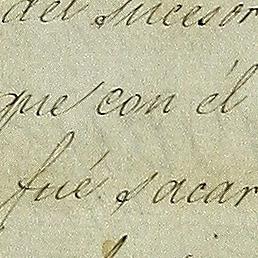 del sucesor
que con él
fué sacar